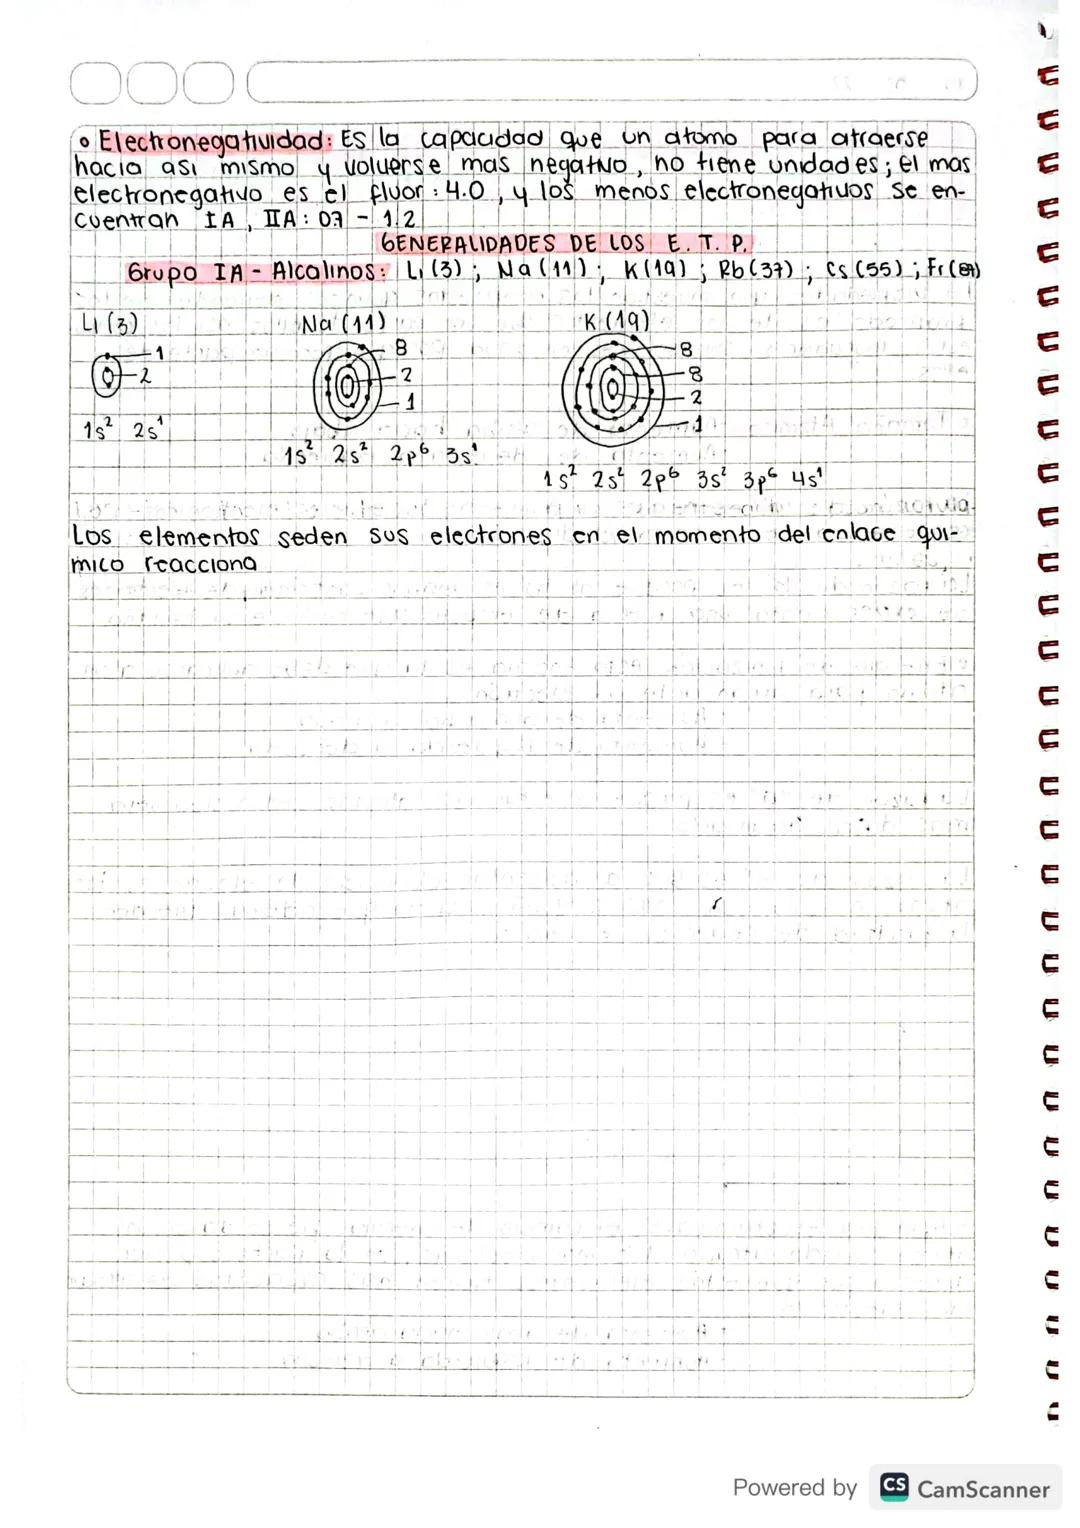 • Electronegatividad: Es la capacidad que un atomo para atraerse
hacia asi mismo y volverse mas negativo, no tiene unidades; el mas
electronegativo es el fluor: 4.0, y los menos electronegativos se en-
cuentran IA, IIA: 0.7 - 1.2
GENERALIDADES DE LOS E. T. P.
Grupo IA - Alcalinos: Li (3); Na (11); K (19); Rb (37); Cs (55); Fr (87)
Li (3) Na (11) K (19)
1
2
8
2
1
8
8
2
1
1s² 2s¹
1s² 2s² 2p⁶ 3s¹
1s² 2s² 2p⁶ 3s² 3p⁶ 4s¹
Los elementos seden sus electrones en el momento del enlace qui-
mico reacciona
Powered by CS CamScanner